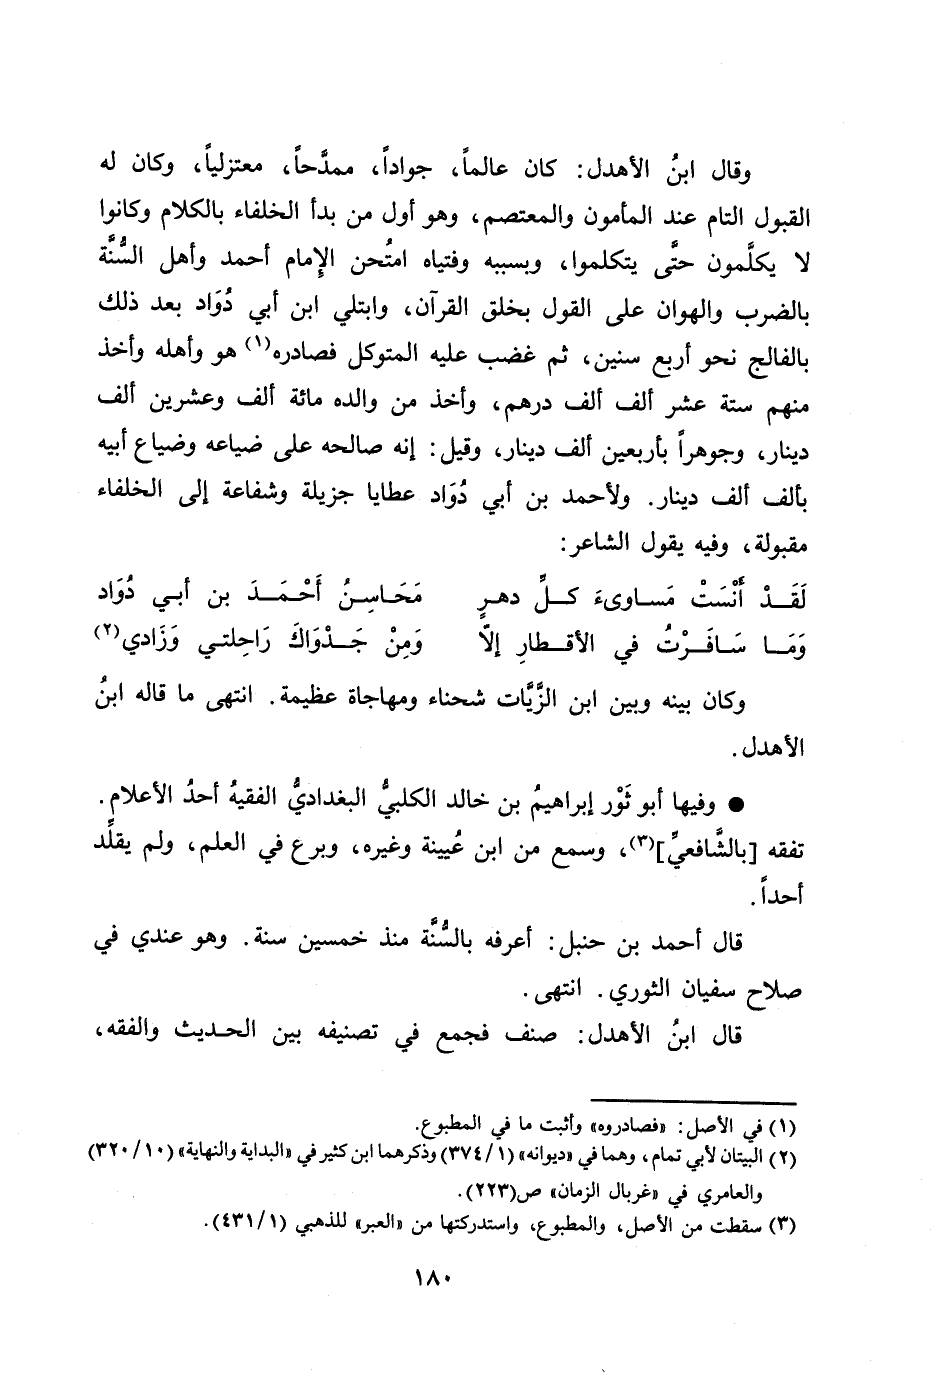 وقال ابنُ الأهدل: كان عالماً، جواداً، ممدَّحاً، معتزلياً، وكان له
القبول التام عند المأمون والمعتصم، وهو أول من بدأ الخلفاء بالكلام وكانوا
لا يكلَّمون حتَّى يتكلموا، وبسببه وفتياه امتُحن الإمام أحمد وأهل السُّنَّة
بالضرب والهوان على القول بخلق القرآن، وابتلي ابن أبي دُوَاد بعد ذلك
بالفالج نحو أربع سنين، ثم غضب عليه المتوكل فصادره(١) هو وأهله وأخذ
منهم ستة عشر ألف ألف درهم، وأخذ من والده مائة ألف وعشرين ألف
دينار، وجوهراً بأربعين ألف دينار، وقيل: إنه صالحه على ضياعه وضياع أبيه
بألف ألف دينار. ولأحمد بن أبي دُوَاد عطايا جزيلة وشفاعة إلى الخلفاء
مقبولة، وفيه يقول الشاعر:
لَقَدْ أَنْسَتْ مَساوىءَ كلِّ دهرٍ مَحَاسِنُ أَحْمَدَ بن أبي دُوَاد
وَمَا سَافَرْتُ في الأقطارِ إلاّ وَمِنْ جَدْوَاكَ رَاحِلتي وَزَادي(٢)
وكان بينه وبين ابن الزَّيَّات شحناء ومهاجاة عظيمة. انتهى ما قاله ابنُ
الأهدل.
● وفيها أبو ثَوْر إبراهيمُ بن خالد الكلبيُّ البغداديُّ الفقيهُ أحدُ الأعلام.
تفقه [بالشَّافعيِّ](٣)، وسمع من ابن عُيينة وغيره، وبرع في العلم، ولم يقلِّد
أحداً.
قال أحمد بن حنبل: أعرفه بالسُّنَّة منذ خمسين سنة. وهو عندي في
صلاح سفيان الثوري. انتهى.
قال ابنُ الأهدل: صنف فجمع في تصنيفه بين الحديث والفقه،
(١) في الأصل: «فصادروه» وأثبت ما في المطبوع.
(٢) البيتان لأبي تمام، وهما في «ديوانه» (١/٣٧٤) وذكرهما ابن كثير في «البداية والنهاية» (١٠/٣٢٠)
والعامري في «غربال الزمان» ص(٢٢٣).
(٣) سقطت من الأصل، والمطبوع، واستدركتها من «العبر» للذهبي (١/٤٣١).
١٨٠